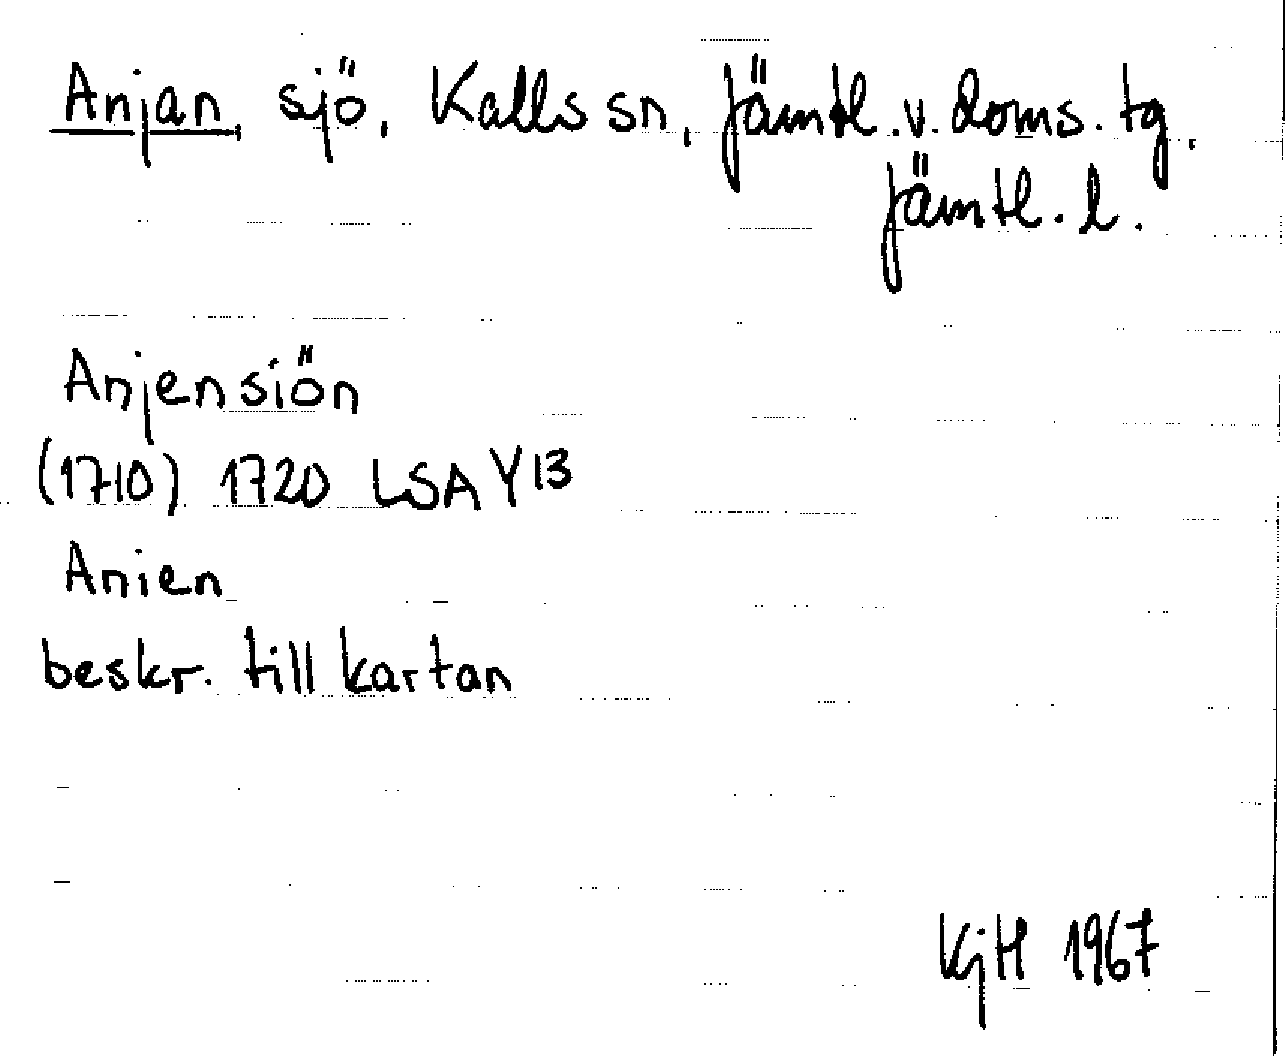 Anjan, sjö, Kalls sn, Jämtl. v. doms. tg,
Jämtl. l.
Anjensiön
(1710) 1720 LSA Y13
Anien
beskr. till kartan
KjH 1967